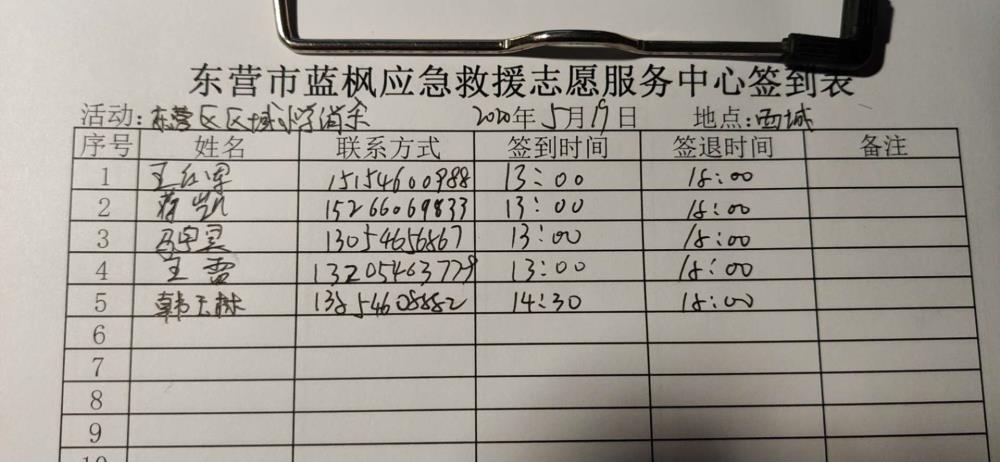 东营市蓝枫应急救援志愿服务中心签到表
活动:东营区区域小学消杀 2020年5月19日 地点:西城
序号 姓名 联系方式 签到时间 签退时间 备注
1 王红军 15154600988 13:00 18:00
2 蒋凯 15266069833 13:00 18:00
3 13054656867 13:00 18:00
4 王雷 13205463779 13:00 18:00
5 韩天林 13854608882 14:30 18:00
6
7
8
9
10